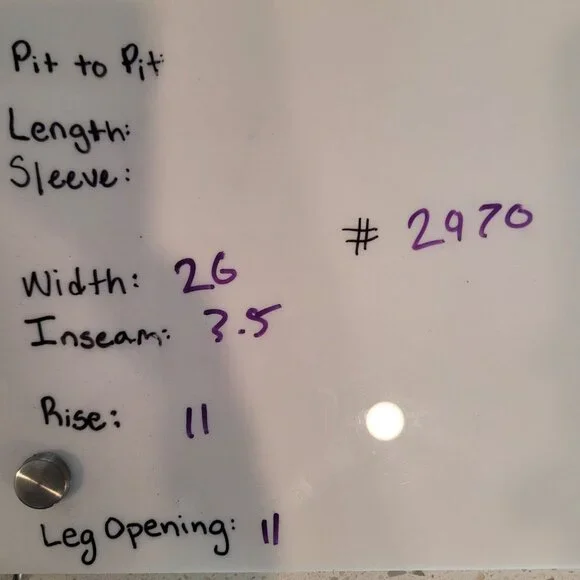 Pit to Pit:
Length:
Sleeve:
# 2970
Width: 26
Inseam: 3.5
Rise: 11
Leg Opening: 11